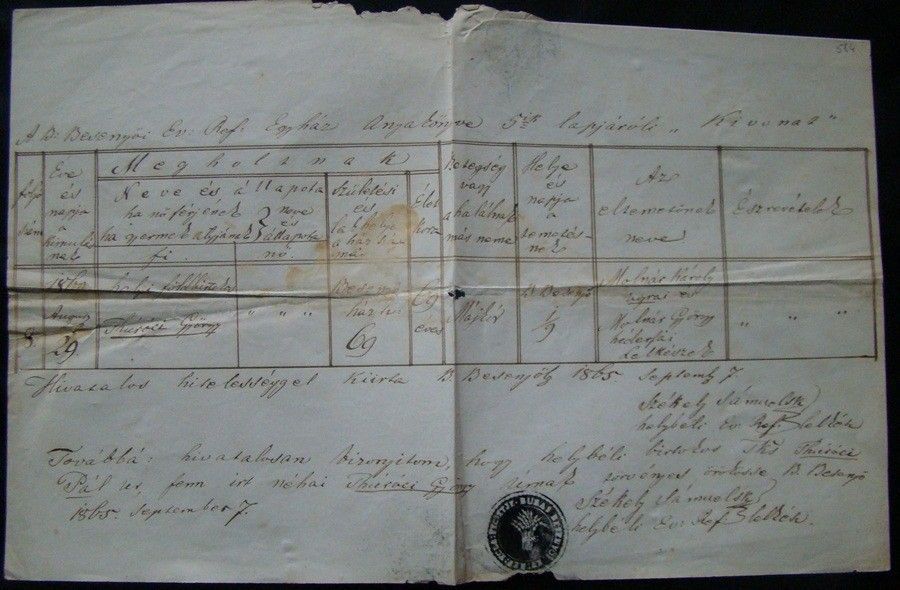 584
A B: Besenyői Ev: Ref: Egyház Anyakönyve 5ik lapjáróli „Kivonat"
folyó
szám
Éve
és
napja
a
kimulás
nak
Megholtnak
Neve és á
ha nő férjének
ha gyermek atyjának
fi
llapota
neve
és
állapota
nő
Születési
és
lakhelye
a ház szá
ma
Élet
kora
Betegség
vagy
a halálnak
más neme
Helye
és
napja
a
temetés
nek
Az
eltemetőnek
neve
Észrevételek
8
186
August
29
helyi földbirtokos
Thuróci György
„ „ „
Besenyő
ház
69
69
éves
Májkór
B. Besenyő
1/9
Molnár Károly
ugrai és
Molnár György
héderfái
Lelkészek
„ „ „
Hivatalos hitelességgel kiirta B Besenyőn 1865 Septemb 7
Székely Sámuel
helybéli Ev. Ref. Lelkész
Továbbá: hivatalosan bizonyitom, hogy helybéli birtokos Tks Thuróci
Pál ur, fenn irt néhai Thuróci György urnak törvényes örököse B. Besenyő
1865. September 7.
Székely Sámuel
helybéli Ev. Ref. Lelkész.